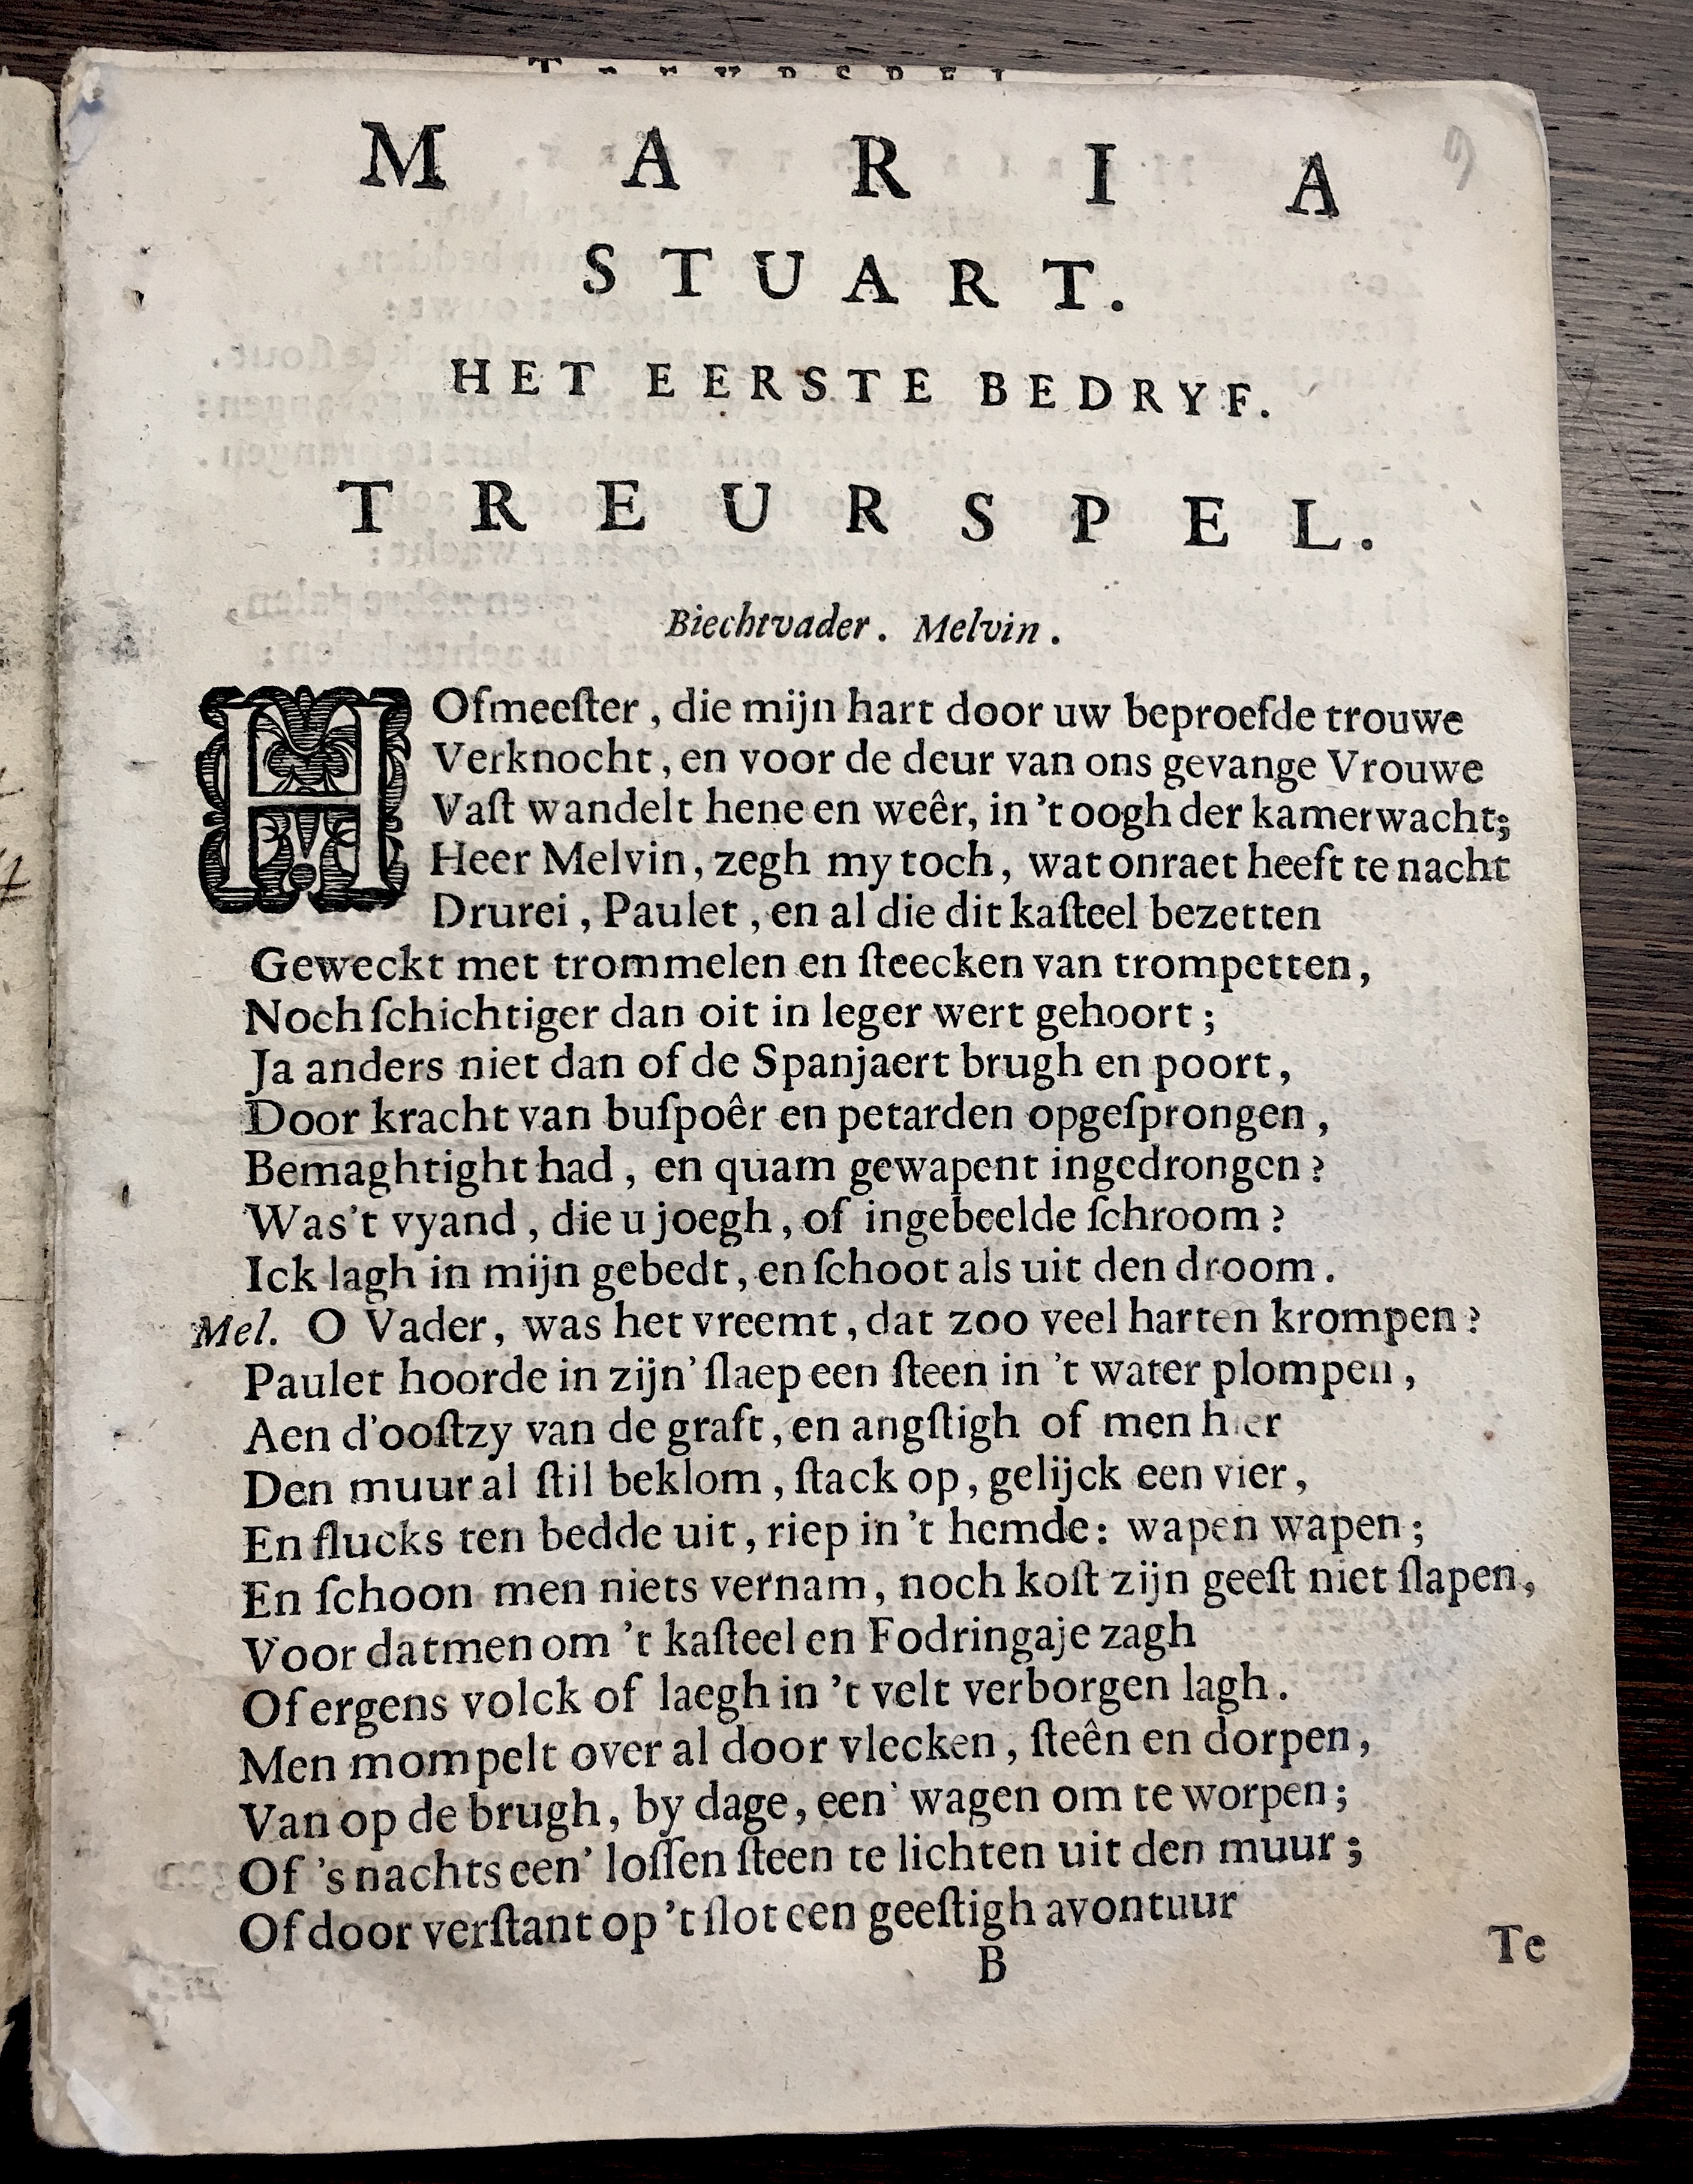 MARIA
STUART.
HET EERSTE BEDRYF.
TREURSPEL.
Biechtvader. Melvin.
HOfmeeſter, die mijn hart door uw beproefde trouwe
Verknocht, en voor de deur van ons gevange Vrouwe
Vaſt wandelt hene en weêr, in 't oogh der kamerwacht;
Heer Melvin, zegh my toch, wat onraet heeft te nacht
Drurei, Paulet, en al die dit kaſteel bezetten
Geweckt met trommelen en ſteecken van trompetten,
Noch ſchichtiger dan oit in leger wert gehoort;
Ja anders niet dan of de Spanjaert brugh en poort,
Door kracht van buſpoêr en petarden opgeſprongen,
Bemaghtight had, en quam gewapent ingedrongen?
Was't vyand, die u joegh, of ingebeelde ſchroom?
Ick lagh in mijn gebedt, en ſchoot als uit den droom.
Mel. O Vader, was het vreemt, dat zoo veel harten krompen?
Paulet hoorde in zijn' ſlaep een ſteen in 't water plompen,
Aen d'ooſtzy van de graft, en angſtigh of men hier
Den muur al ſtil beklom, ſtack op, gelijck een vier,
En flucks ten bedde uit, riep in 't hemde: wapen wapen;
En ſchoon men niets vernam, noch koſt zijn geeſt niet ſlapen,
Voor datmen om 't kaſteel en Fodringaje zagh
Of ergens volck of laegh in 't velt verborgen lagh.
Men mompelt over al door vlecken, ſteên en dorpen,
Van op de brugh, by dage, een' wagen om te worpen;
Of 's nachts een' loſſen ſteen te lichten uit den muur;
Of door verſtant op 't ſlot een geeſtigh avontuur
B
Te